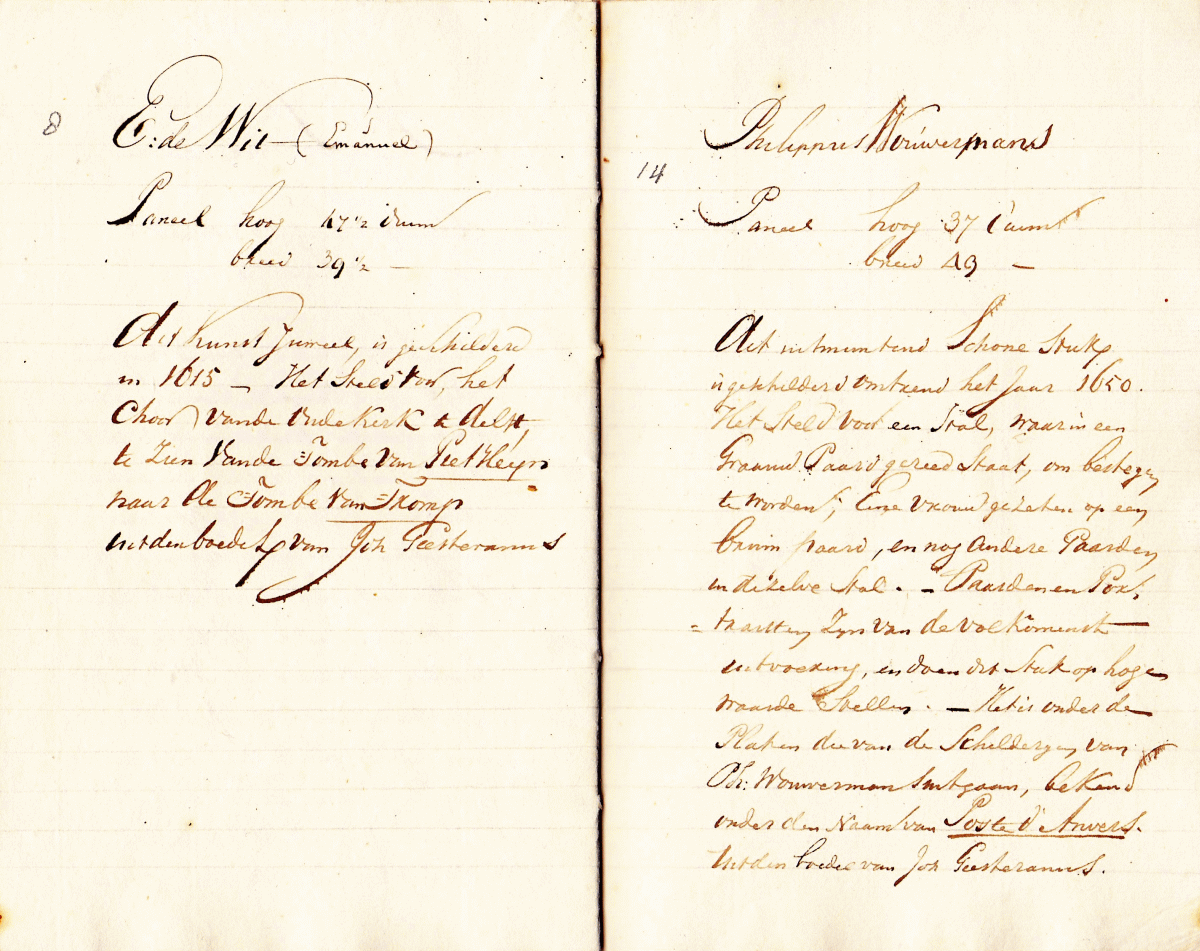 8
E: de Wit (Emanuel)
Paneel hoog 47½ duim
breed 39½ —
Dit Kunst Juweel, is geschilderd
in 1615 — Het Steld voor, het
Choor vande Oude Kerk te delft,
te Zien Vande Tombe van Piet Heyn
naar de Tombe van Tromp
uit den boedel van Joh Geesteranus
14
Philippus Wouwermans
Paneel hoog 37 duim
breed 49 —
Dit uitmuntend Schone Stuk
is geschilderd omtrend het Jaar 1650.
Het Steld voor een Stal, waar in een
Graauw Paard gereed Staat, om bestegen
te worden; Eene vrouw gezeten op een
bruin paard, en nog andere Paarden
in dezelve Stal. — Paarden en Por-
= traitten Zyn van de volkomenste
uitvoering, en doen dit Stuk op hoge
waarde Stellen. — Het is onder de
Platen die van de Schilderyen van
Ph: Wouwermans uitgaan, bekend
onder den Naam van Poste d'Anvers.
Uit den boedel van Joh Geesteranus.